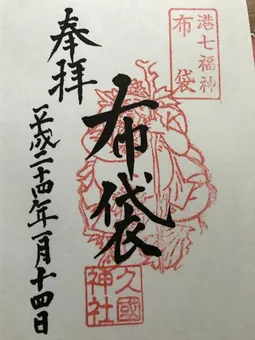 港七福神
布袋
奉拝
布袋
平成二十四年一月十四日
久國
神社